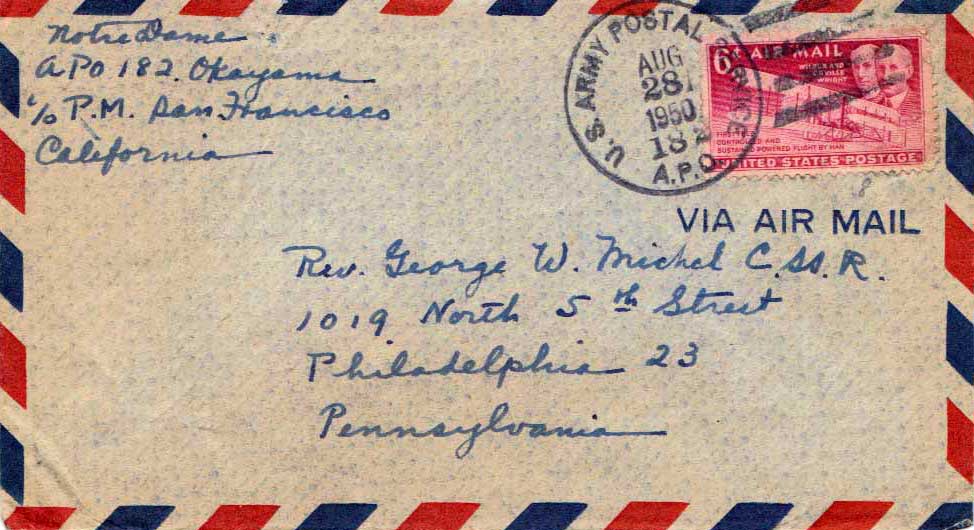 Notre Dame
A.P.O 182. Okayama
c/o P.M. San Francisco
California
U.S. ARMY POSTAL SERVICE
AUG
28
1950
182
A.P.O.
6¢ AIR MAIL
WILBUR AND
ORVILLE
WRIGHT
FIRST
CONTROLLED AND
SUSTAINED POWERED FLIGHT BY MAN
UNITED STATES POSTAGE
VIA AIR MAIL
Rev. George W. Michel C.SS.R.
1019 North 5th Street
Philadelphia 23
Pennsylvania